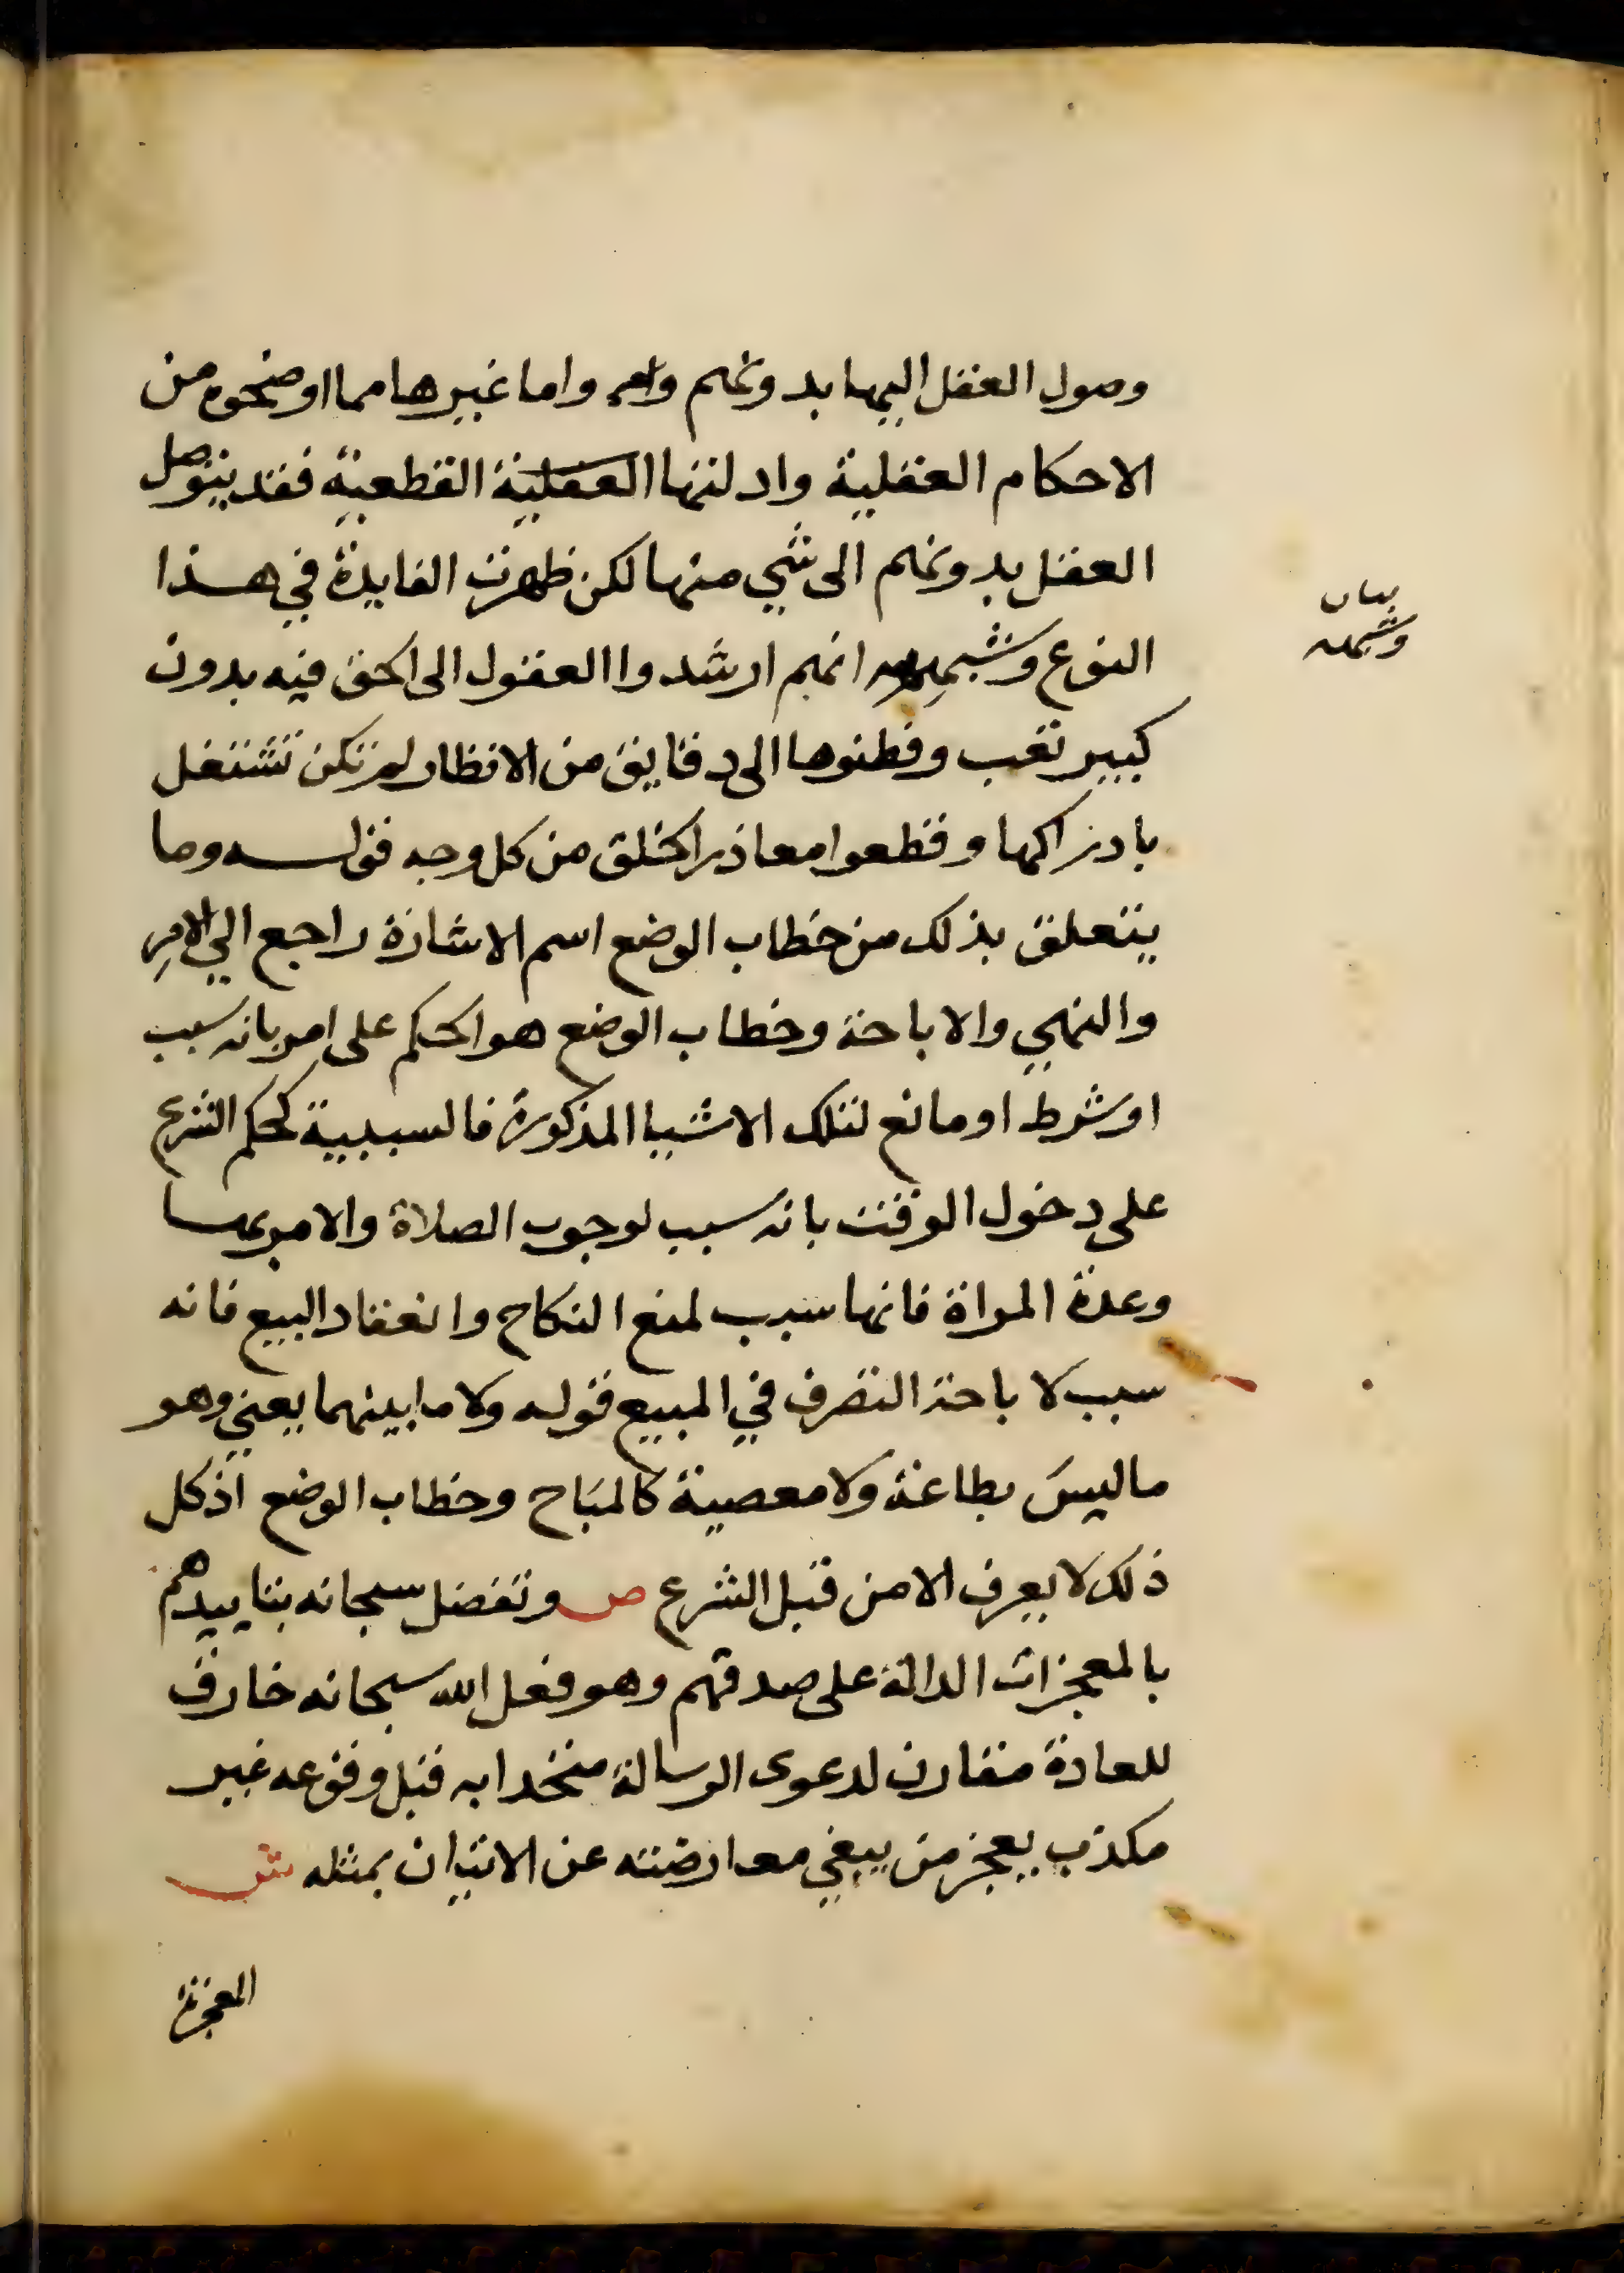 وصول العقل اليها بدونهم واما غيرها مما اوضحوه من
الاحكام العقلية وادلتها العقلية القطعية فقد يتوصل
العقل بدونهم الى شي منها لكن ظهرت الفايدة في هذا
النوع انهم ارشدوا العقول الى الحق فيه بدون
كبير تعب وفطنوها الى دقايق من الانظار لم تكن تشتغل
بادراكها وقطعوا معاذر الخلق من كل وجه قوله وما
يتعلق بذلك من خطاب الوضع اسم الاشارة راجع الي الامر
والنهي والاباحة وخطاب الوضع هو الحكم على امر بانه سبب
او شرط او مانع لتلك الاشيا المذكورة فالسببية كحكم الشرع
على دخول الوقت بانه سبب لوجوب الصلاة والامر بها
وعدة المراة فانها سبب لمنع النكاح وانعقاد البيع فانه
سبب لاباحة التصرف في المبيع قوله ولا ما بينهما يعني وهو
ما ليس بطاعة ولا معصية كالمباح وخطاب الوضع اذ كل
ذلك لا يعرف الا من قبل الشرع ص وتفضل سبحانه بتاييدهم
بالمعجزات الدالة على صدقهم وهو فعل الله سبحانه خارق
للعادة مقارن لدعوى الرسالة متحدا به قبل وقوعه غير
مكذب يعجز من يبغي معارضته عن الاتيان بمثله ش
المعجزة
بيان